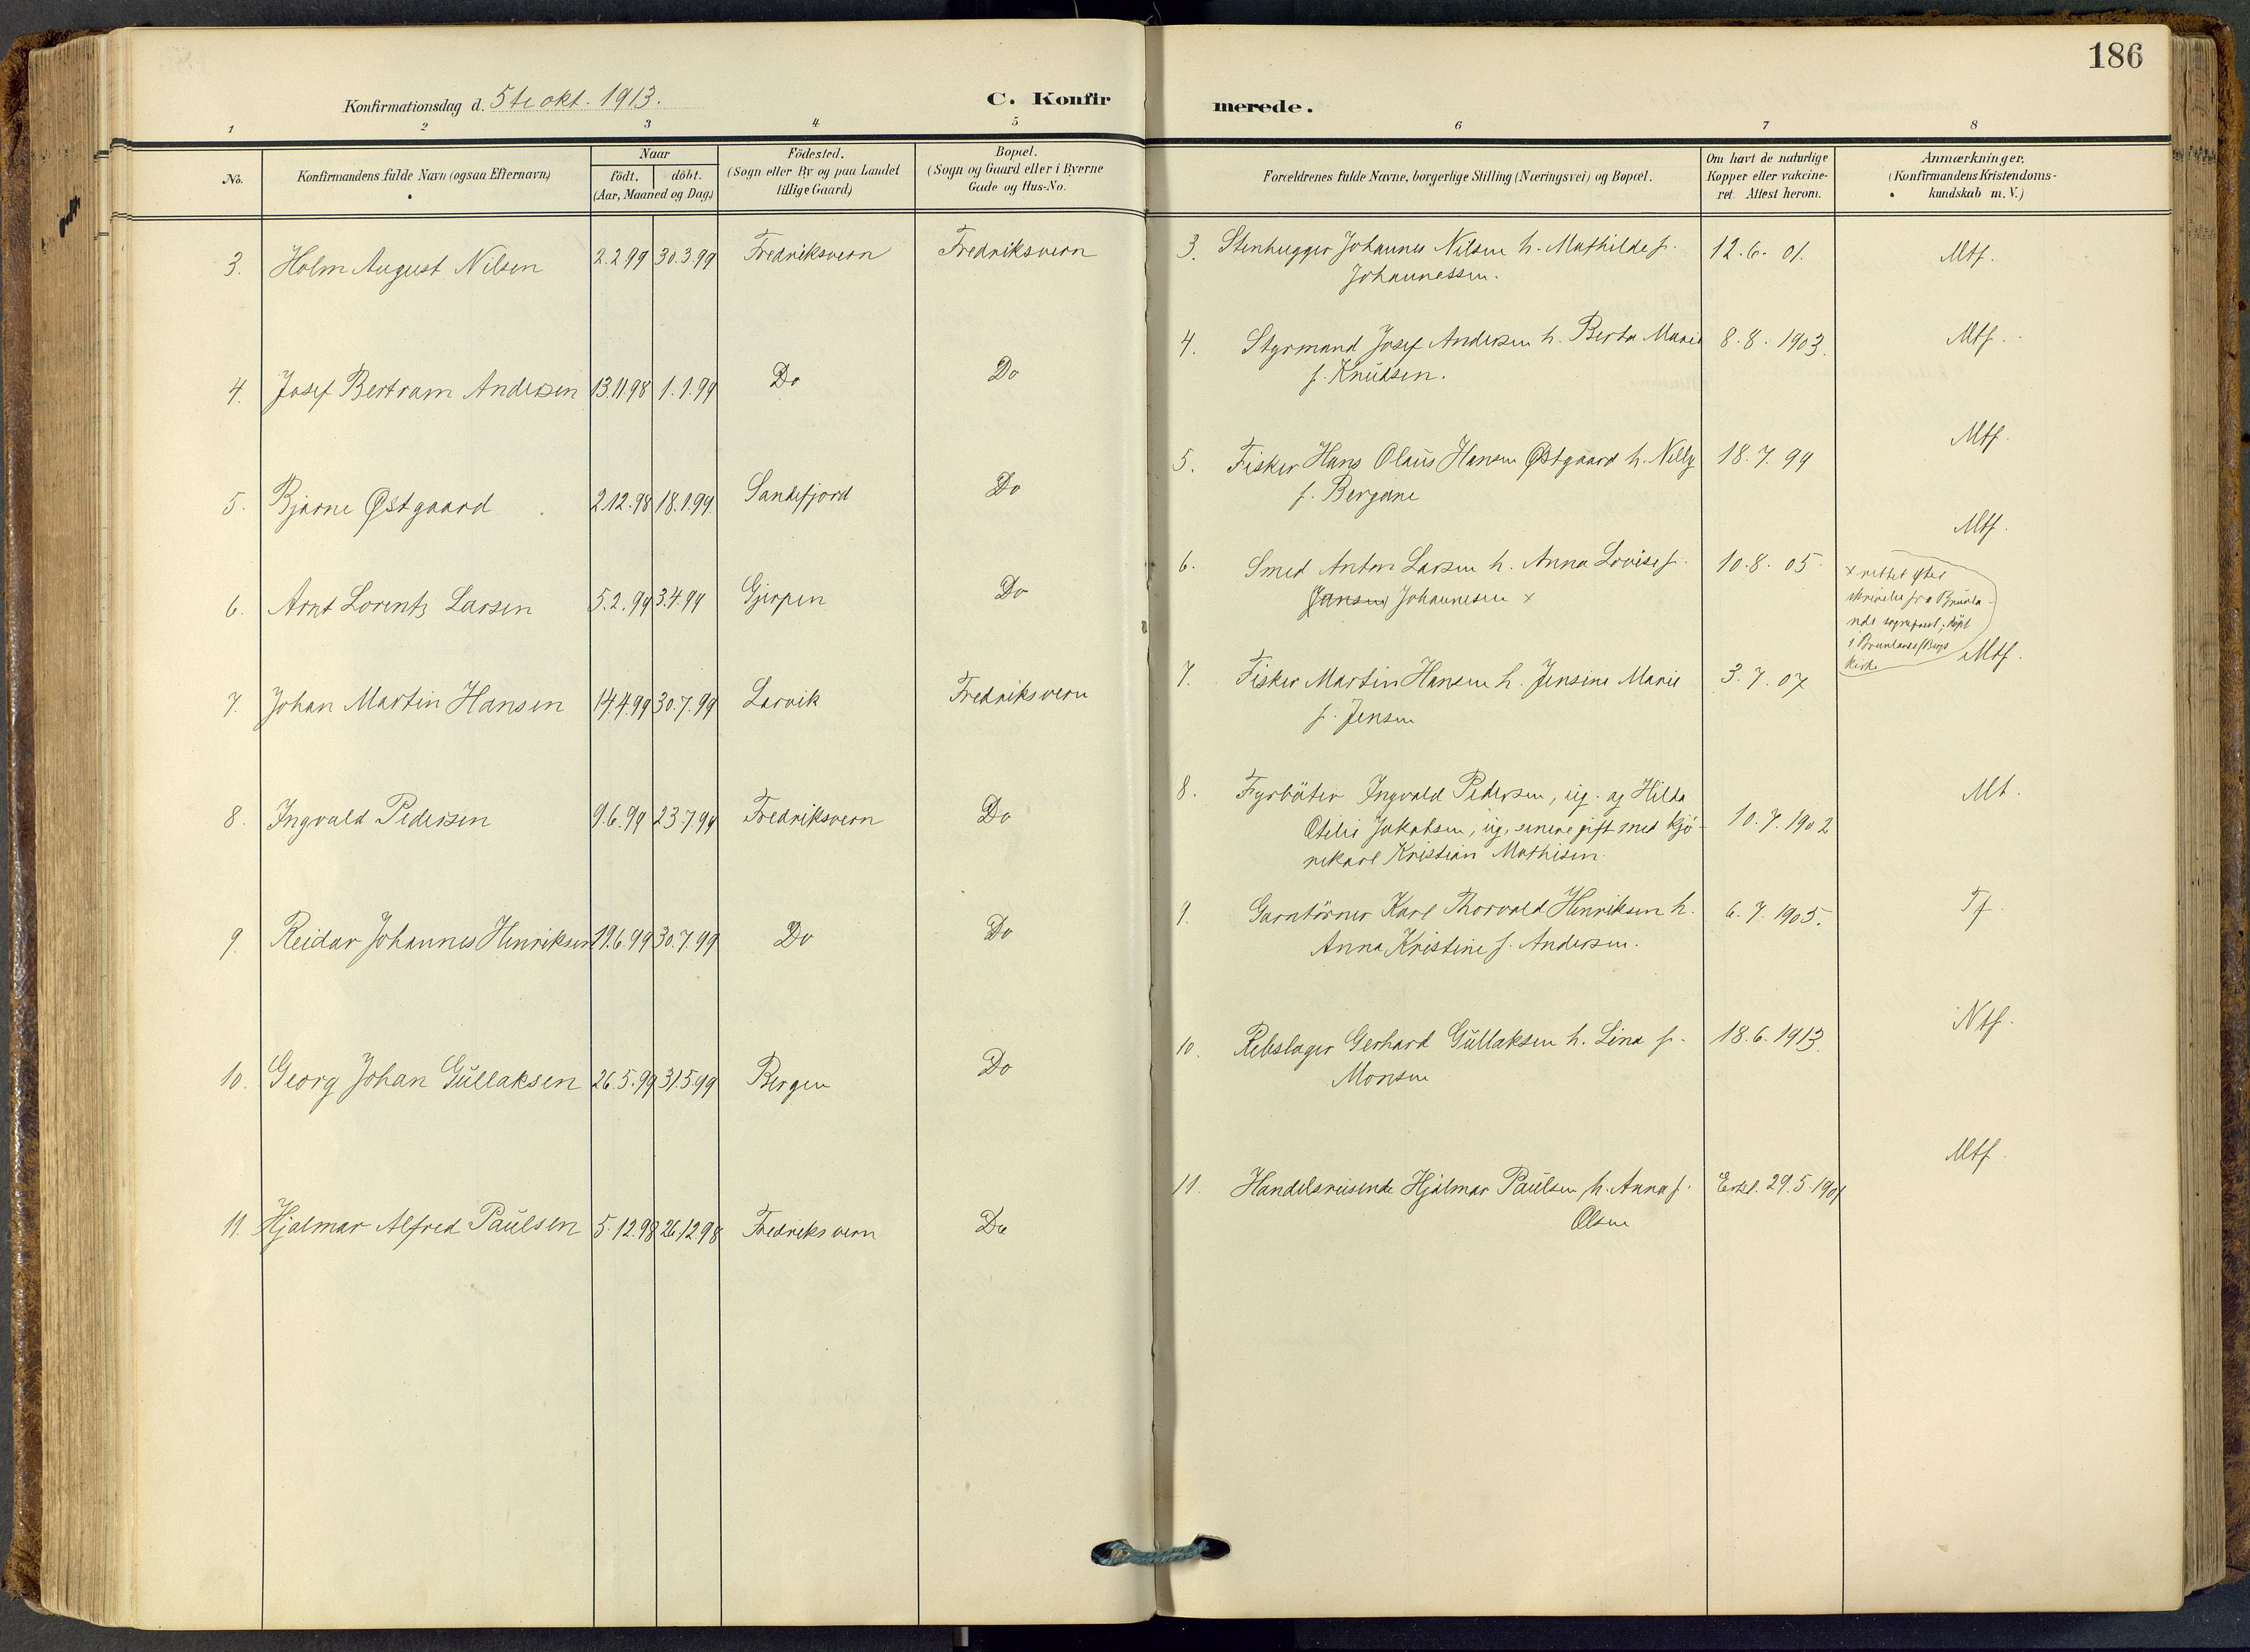 186
Konfirmationsdag d. 5te okt. 1913.
C. Konfirmerede.
1 2 3 4 5 6 7 8
No.
Konfirmandens fulde Navn (ogsaa Efternavn)
Naar
födt. döbt.
(Aar, Maaned og Dag.)
Födested.
(Sogn eller By og paa Landet
tillige Gaard)
Bopæl.
(Sogn og Gaard eller i Byerne
Gade og Hus-No.
Forældrenes fulde Navne, borgerlige Stilling (Næringsvei) og Bopæl.
Om havt de naturlige
Kopper eller vakcine-
ret. Attest herom.
Anmærkninger,
(Konfirmandens Kristendoms-
kundskab m. V.)
3. Holm August Nilsen 2.2.99 30.3.99 Fredriksvern Fredriksvern
4. Josef Bertram Andersen 13.11.98 1.1.99 Do Do
5. Bjarne Østgaard 2.12.98 18.1.99 Sandefjord Do
6. Arnt Lorentz Larsen 5.2.99 3.4.99 Gjerpen Do
7. Johan Martin Hansen 14.4.99 30.7.99 Larvik Fredriksvern
8. Ingvald Pedersen 9.6.99 23.7.99 Fredriksvern Do
9. Reidar Johannes Henriksen 19.6.99 30.7.99 Do Do
10. Georg Johan Gullaksen 26.5.99 31.5.99 Bergen Do
11. Hjalmar Alfred Paulsen 5.12.98 26.12.98 Fredriksvern Do
3. Stenhugger Johannes Nilsen h. Mathilde f. 12.6.01. Mtf.
Johannessen.
4. Styrmand Josef Andersen h. Berta Marie 8.8.1903. Mtf.
f. Knudsen.
5. Fisker Hans Olaus Hansen Østgaard h. Nelly 18.7.99 Mtf.
f. Bergane
6. Smed Anton Larsen h. Anna Lovise f. 10.8.05. Mtf.
Jansen Johannesen x
x rettet efter
skrivelse fra Brunla-
nds sogneprest; døpt
i Brunlanes/Bergs
kirke
7. Fisker Martin Hansen h. Jensine Marie 3.7.07 Mtf.
f. Jensen
8. Fyrböter Ingvald Pedersen, ug. og Hilda
Otilie Jakobsen, ug, senere gift med kjö- 10.7.1902 Mt.
rekarl Kristian Mathisen.
9. Garntörner Karl Thorvald Henriksen h. 6.7.1905. Tf.
Anna Kristine f. Andersen.
10. Rebslager Gerhard Gullaksen h. Lina f. 18.6.1913. Ntf.
Monsen
11. Handelsreisende Hjalmar Paulsen h. Anna f. Erkl. 29.5.1901 Mtf.
Olsen